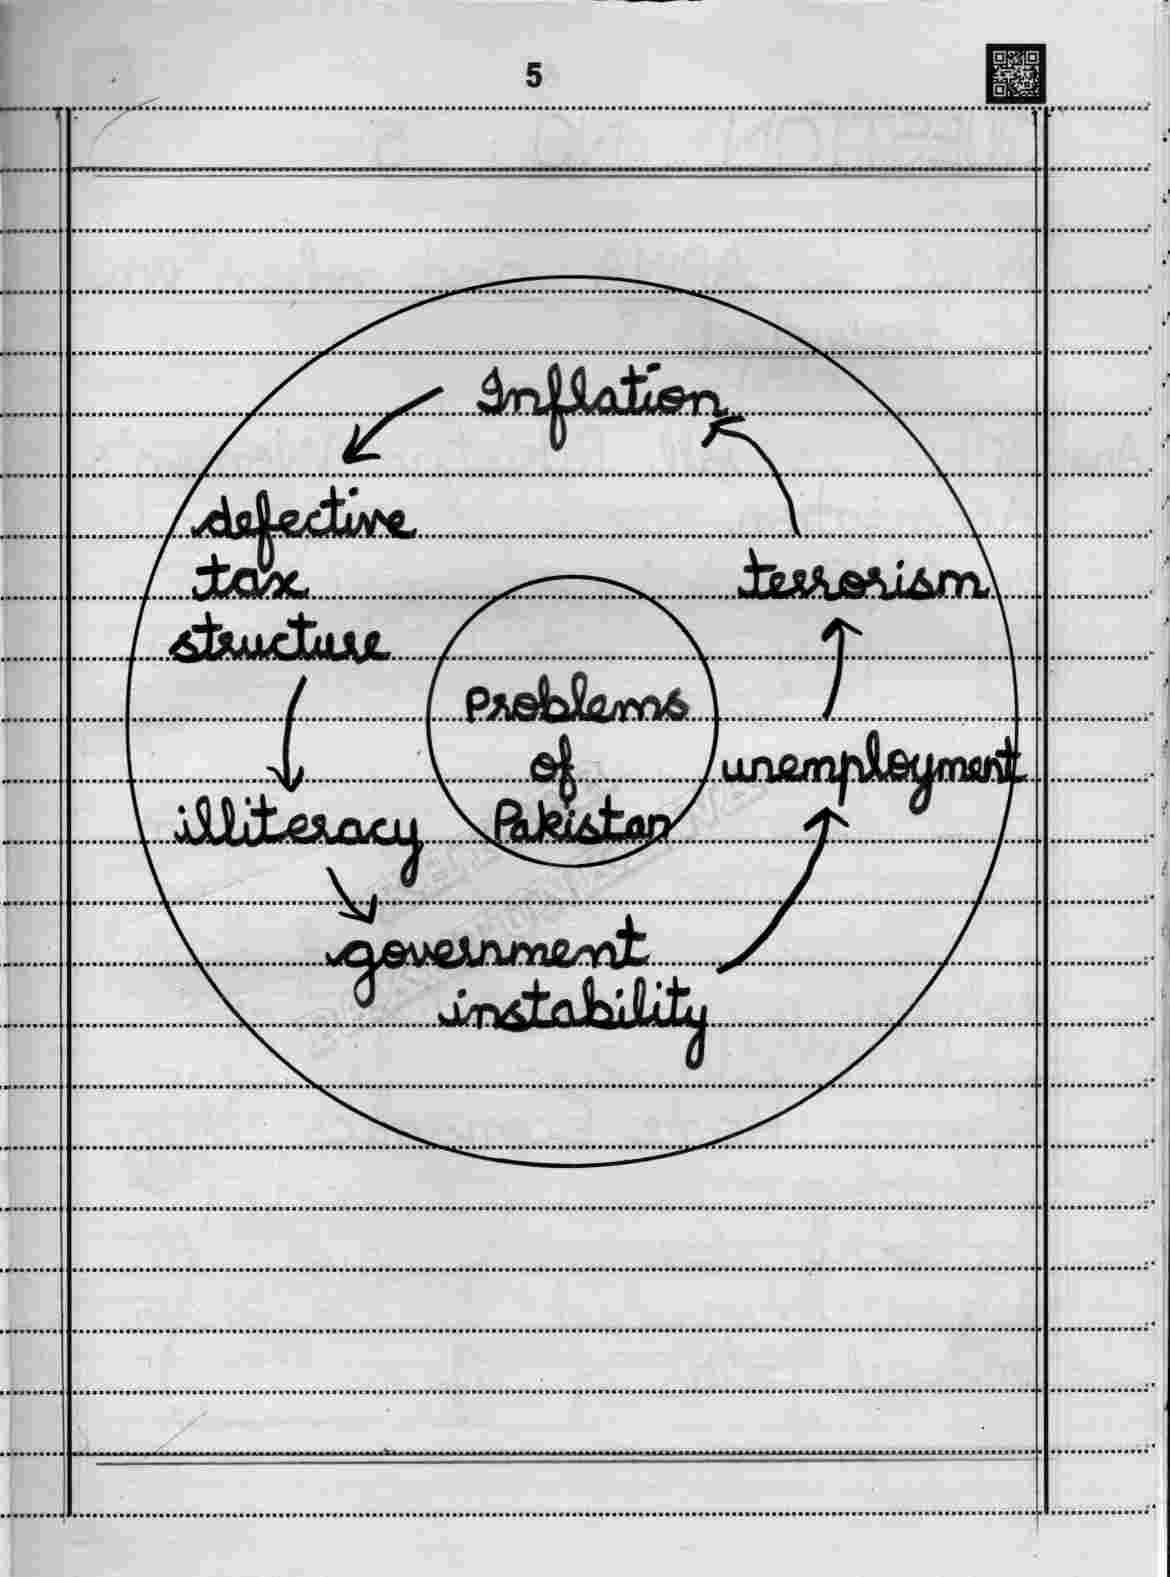 5
Inflation
defective
tax
structure
terrorism
Problems
of
Pakistan
unemployment
illiteracy
government
instability